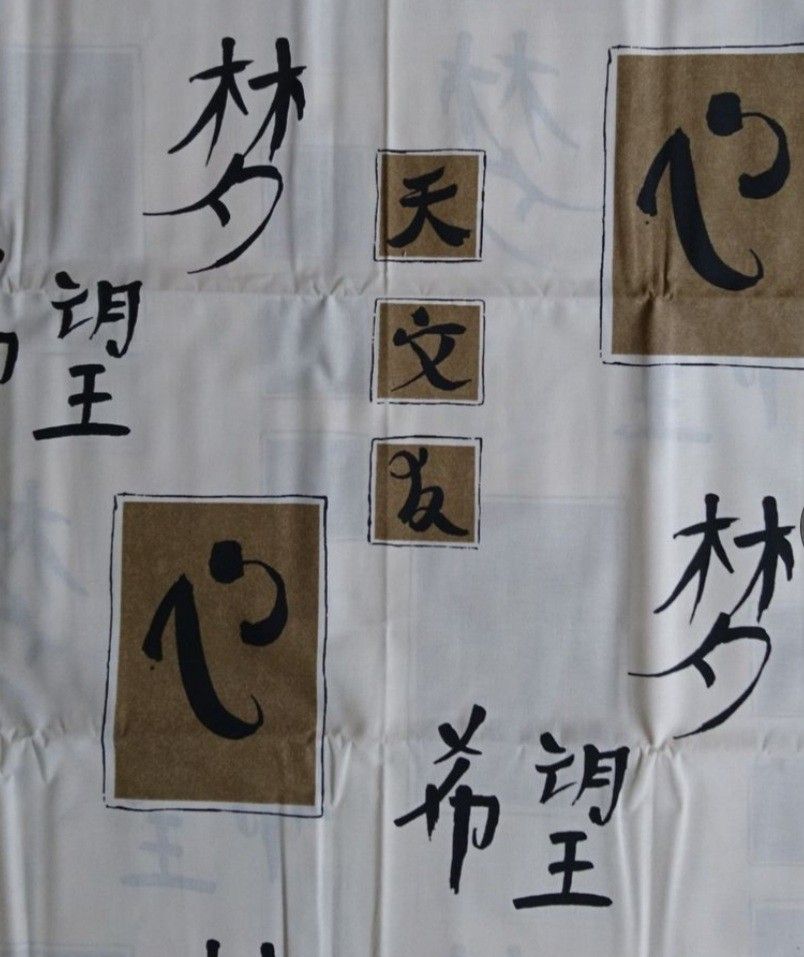 梦
天
心
望
文
友
心
梦
希望